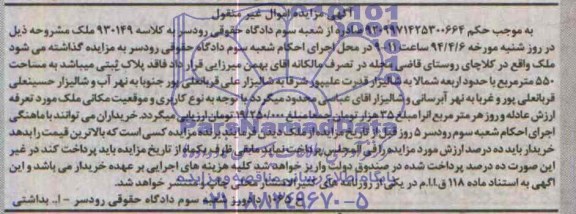 آگهی مزایده اموال غیر منقول
به موجب حکم ۹۳۰۹۹۷۱۴۲۵۳۰۰۶۶۴ صادره از شعبه سوم دادگاه حقوقی رودسر به کلاسه ۹۳۰۱۴۹ ملک مشروحه ذیل
در روز شنبه مورخه ۹۴/۴/۶ ساعت ۱۱-۹ در محل اجرای احکام شعبه سوم دادگاه حقوقی رودسر به مزایده گذاشته می شود
ملک واقع در کلاچای روستای قاضی محله در تصرف مالکانه اقای بهمن میرزایی قرار داد فاقد پلاک ثبتی میباشد به مساحت
۵۵۰ مترمربع با حدود اربعه شمالا به شالیزار قدرت علیپور شرقا به شالیزار علی قربانعلی پور جنوبا به نهر آب و شالیزار حسینعلی
قربانعلی پور و غربا به نهر آبرسانی و شالیزار اقای عباسی محدود میگردد با توجه به نوع کاربری و موقعیت مکانی ملک مورد تعرفه
ارزش عادله روز هر متر مربع انرا مبلغ ۳۵ هزار تومان جمعا مبلغ ۱۹/۲۵۰/۰۰۰ تومان ارزیابی میگردد. خریداران می توانند با هماهنگی
اجرای احکام شعبه سوم رودسر ۵ روز قبل از تاریخ مزایده از ملک دیدن نمایند برنده مزایده کسی است که بالاترین قیمت را بدهد
خریدار باید ده درصد ارزش مورد مزایده را فی المجلس پرداخت نماید مابقی ظرف یکماه از تاریخ مزایده باید پرداخت کند در غیر
این صورت ده درصد پرداخت شده در صندوق دولت واریز خواهد شد. کلیه هزینه های اجرایی بر عهده خریدار می باشد و این
آگهی به استناد ماده ۱۱۸ ق.ا.ا.م در یکی از روزنامه های کثیرالانتشار محلی چاپ و منتشر خواهد شد.
دادورز شعبه سوم دادگاه حقوقی رودسر - ا. بداشتی
پایگاه اطلاع رسانی مناقصه و مزایده
۰۲۱-۸۸۳۴۹۶۷۰-۵